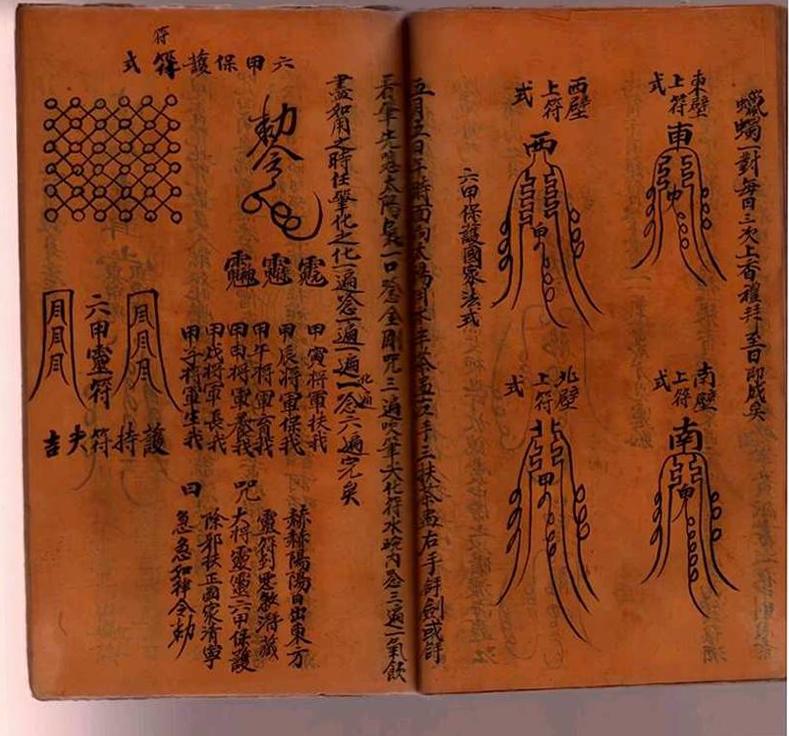 蠟蠋一對每日三次上香禮拜至日即成矣
東壁上符式
東
南壁上符式
南
西壁上符式
西
北壁上符式
北
六甲保護國家法式
五月五日午時面向太陽用水 茶盅 手三扶茶盅右手 劍或
筆先念太陽 一口念金剛咒三遍 筆大化符水碗內念三遍一氣飲
盡如用之時任筆化之化一遍念一遍一遍一念六遍完矣
六甲保護符式
符
勅令
甲寅將軍扶我
甲辰將軍保我
甲午將軍育我
甲申將軍養我
甲戌將軍長我
甲子將軍生我
月月月
六甲靈符
月月月
護持符夫吉
咒曰
赫赫陽陽日出東方
靈符到處 潛藏
大將靈靈六甲保護
除邪扶正國家清寧
急急如律令勅